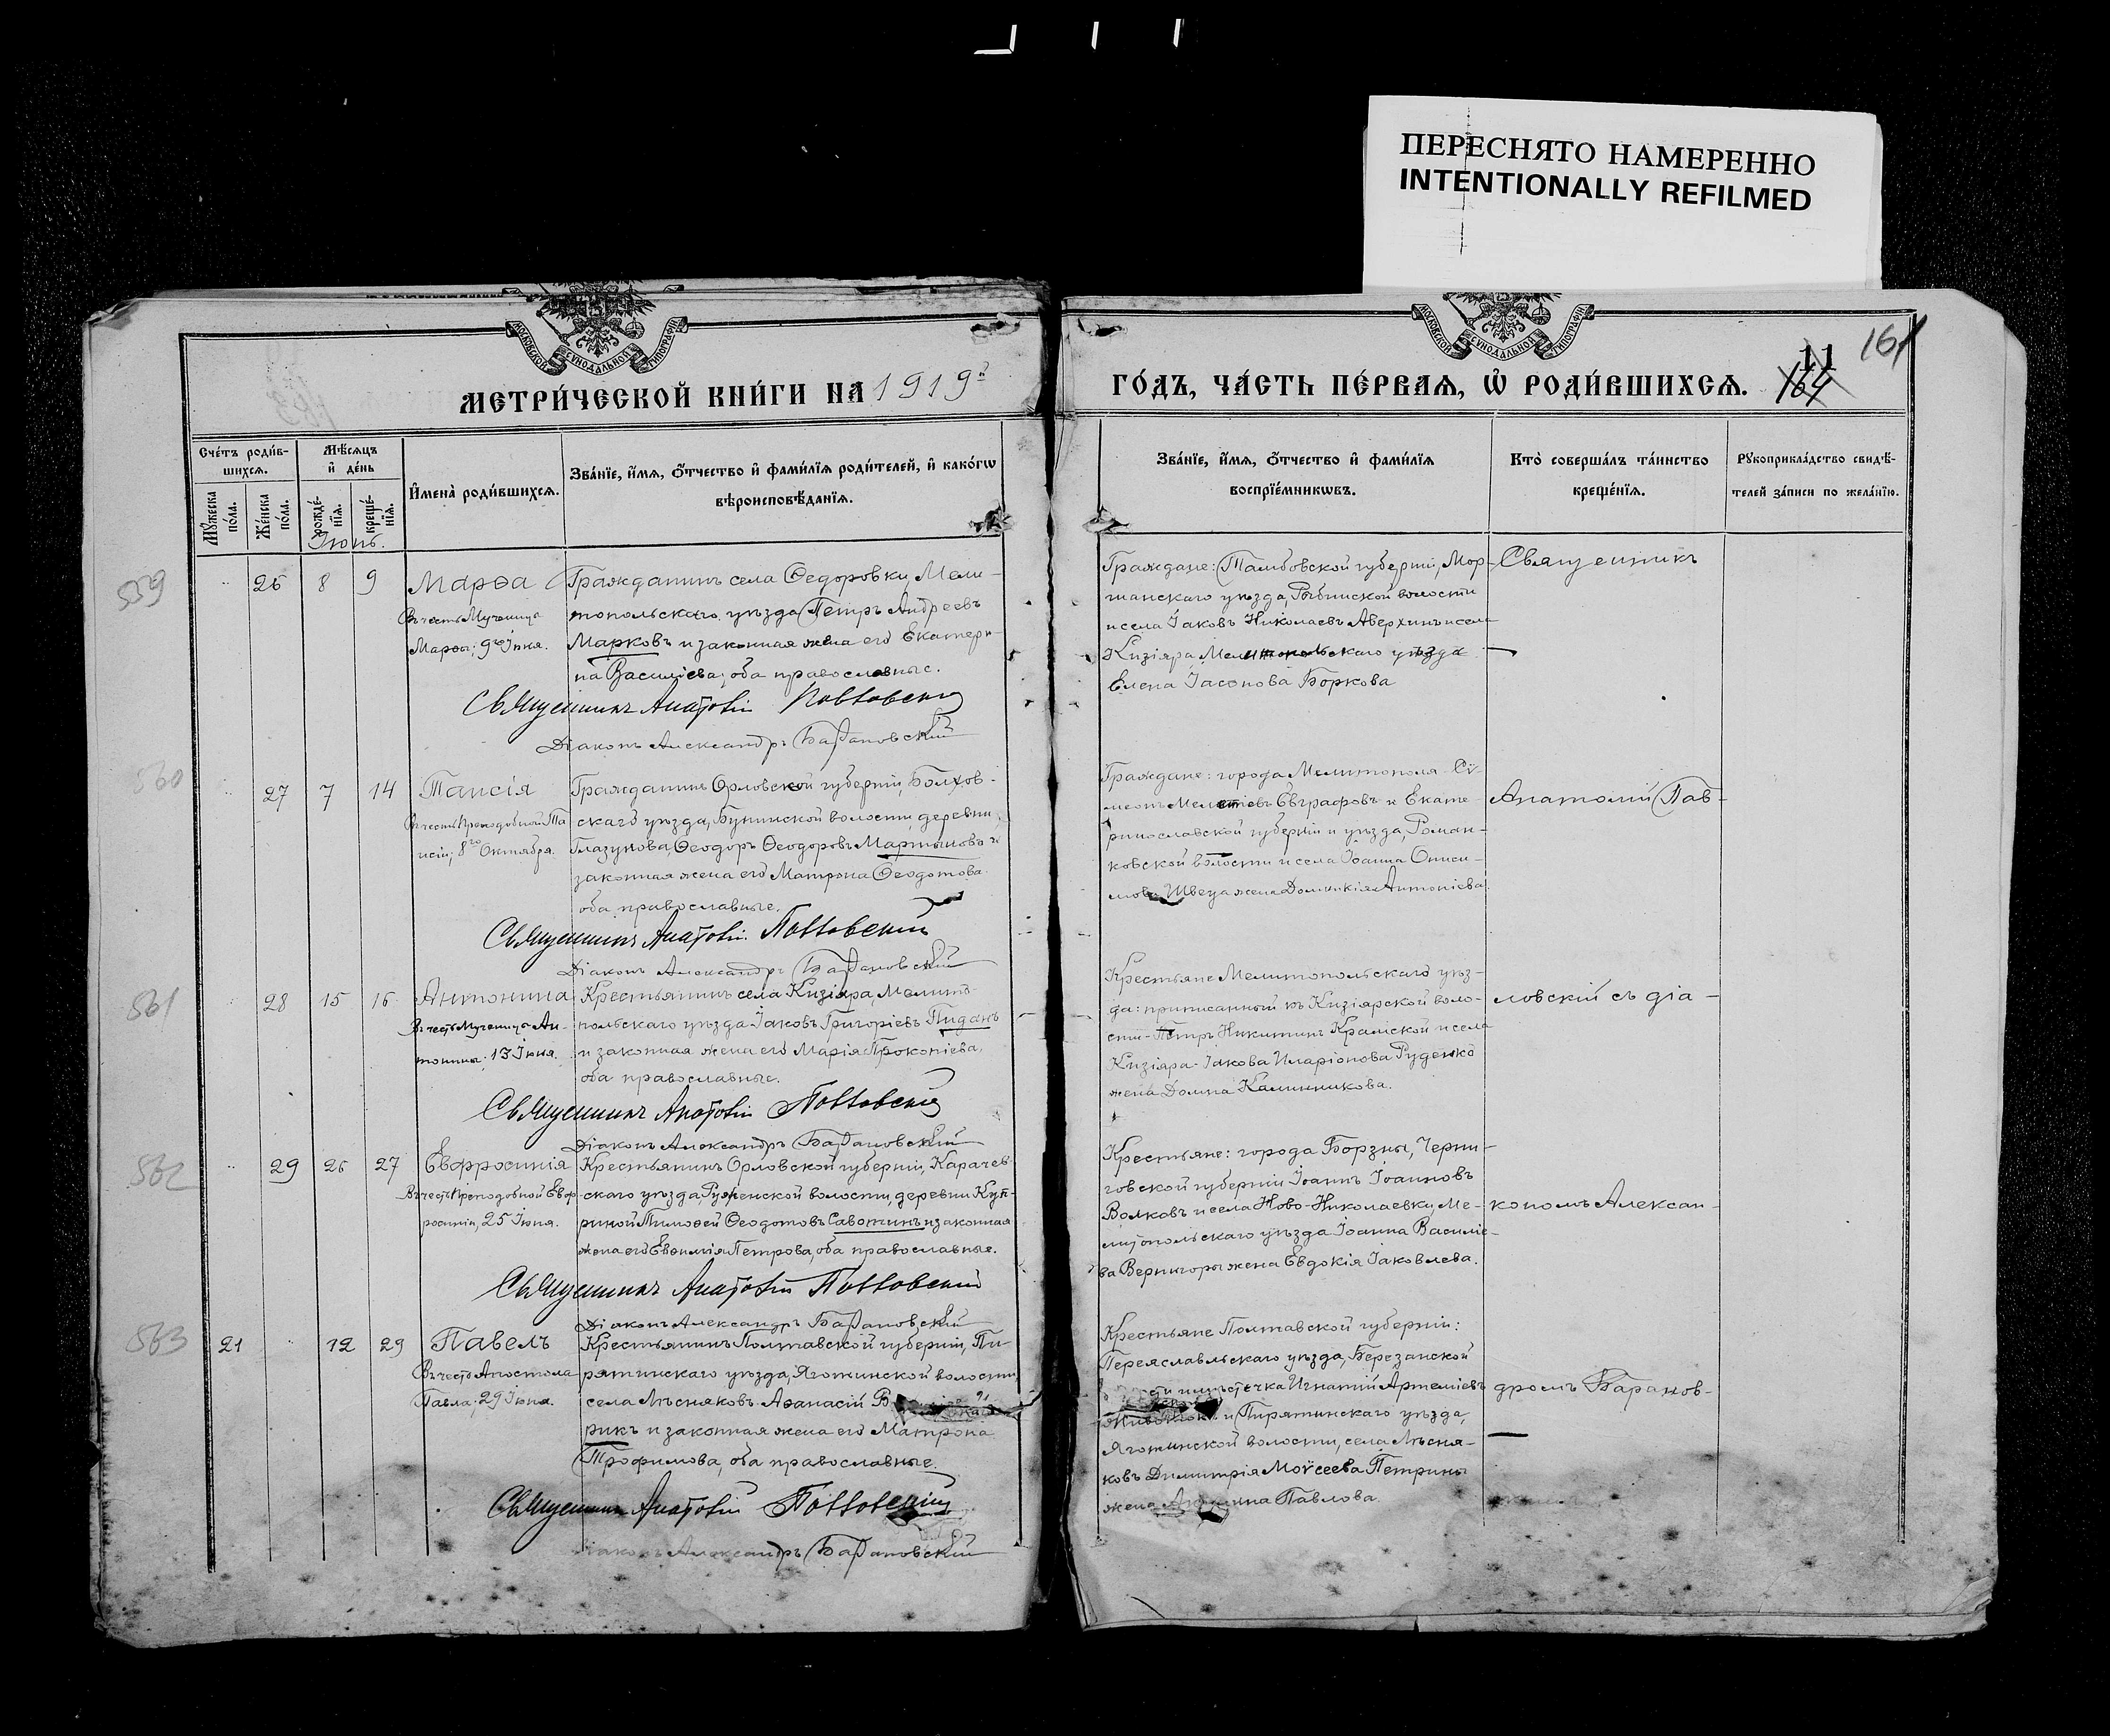 ПЕРЕСНЯТО НАМЕРЕННО
INTENTIONALLY REFILMED
МОСКОВСКОЙ СѴНОДАЛЬНОЙ ТИПОГРАФІИ
МОСКОВСКОЙ СѴНОДАЛЬНОЙ ТИПОГРАФІИ
11
161
164
МЕТРИ́ЧЕСКОЙ КНИ́ГИ НА 1919
ГО́ДЪ, ЧА́СТЬ ПЕ́РВАѦ, Ѡ҆ РОДИ́ВШИХСѦ.
Сче́тъ роди́в-
шихсѧ.
Мѣ́сѧцъ
и҆ де́нь
Мꙋ́жеска по́ла.
Же́нска по́ла.
рожде́-нїѧ.
креще́-нїѧ.
И҆мена̀ роди́вшихсѧ.
Зва́нїе, и҆́мѧ, ѻ҆́тчество и҆ фами́лїѧ роди́телей, и҆ како́гѡ
вѣроисповѣ́данїѧ.
Зва́нїе, и҆́мѧ, ѻ҆́тчество и҆ фами́лїѧ
воспрїе́мникѡвъ.
Кто̀ соверша́лъ та́инство
креще́нїѧ.
Рꙋкоприкла́дство свидѣ́-
телей за́писи по жела́нїю.
Іюнь.
559
26 8 9
Марѳа
Въ честь Мученицы
Марѳы; 9го Іюня.
Гражданинъ села Ѳедоровки, Мели-
топольскаго уѣзда Петръ Андреевъ
Марковъ и законная жена его Екатери-
на Василіева, оба православные.
Священникъ Анатолій Павловскій
Діаконъ Александръ Барановскій
Граждане: Тамбовской губерніи, Мор-
шанскаго уѣзда, Рыбинской волости
и села Іаковъ Николаевъ Аверхинъ и села
Кизіяра Мелитопольскаго уѣзда
Елена Іасонова Боркова
Священникъ
560
27 7 14
Таисія
Въ честь Преподобной Та
исіи; 8го Октября.
Гражданинъ Орловской губерніи, Болхов-
скаго уѣзда, Бунинской волости, деревни
Глазунова, Ѳеодоръ Ѳеодоровъ Мартыновъ и
законная жена его Матрона Ѳеодотова
оба православные.
Священникъ Анатолій Павловскій
Діаконъ Александръ Барановскій
Граждане: города Мелитополя Сѵ-
меонъ Мелетіевъ Евграфовъ и Екате-
ринославской губерніи и уѣзда, Роман-
ковской волости и села Іоанна Ониси-
мова Швеца жена Домникія Антоніева.
Анатолій Пав-
561
28 15 16
Антонина
Въ честь Мученицы Ан-
тонины; 13 Іюня.
Крестьянинъ села Кизіяра, Мелито-
польскаго уѣзда Іаковъ Григоріевъ Пиданъ
и законная жена его Марія Прокопіева,
оба православные.
Священникъ Анатолій Павловскій
Діаконъ Александръ Барановскій
Крестьяне Мелитопольскаго уѣз-
да: приписанный къ Кизіярской воло-
сти - Петръ Никитинъ Крамской и села
Кизіяра - Іакова Иларіонова Руденко
жена Домна Калинникова.
ловскій съ діа-
562
29 26 27
Евфросинія
Въ честь Преподобной Евф-
росиніи, 25 Іюня.
Крестьянинъ Орловской губерніи, Карачев-
скаго уѣзда, Руженской волости, деревни Куп-
риной Тимоѳей Ѳеодотовъ Савоткинъ и законная
жена его Евѳимія Петрова, оба православные.
Священникъ Анатолій Павловскій
Діаконъ Александръ Барановскій
Крестьяне: города Борзны, Черни-
говской губерніи Іоаннъ Іоанновъ
Волковъ и села Ново-Николаевки, Ме-
литопольскаго уѣзда Іоанна Василіе-
ва Вернигоры жена Евдокія Іаковлева.
кономъ Алексан-
563
21 12 29
Павелъ
Въ честь Апостола
Павла; 29 Іюня.
Крестьянинъ Полтавской губерніи, Пи-
рятинскаго уѣзда, Яготинской волости
села Лѣсняковъ Аѳанасій
рикъ и законная жена его Матрона
Трофимова, оба православные.
Священникъ Анатолій Павловскій
Діаконъ Александръ Барановскій
Крестьяне Полтавской губерніи:
Переяславльскаго уѣзда, Березанской
и мѣстечка Игнатій Артеміевъ
и Пирятинскаго уѣзда,
Яготинской волости, села Лѣсня-
ковъ Димитрія Моѵсеева Петрины
жена Павлова
дромъ Баранов-